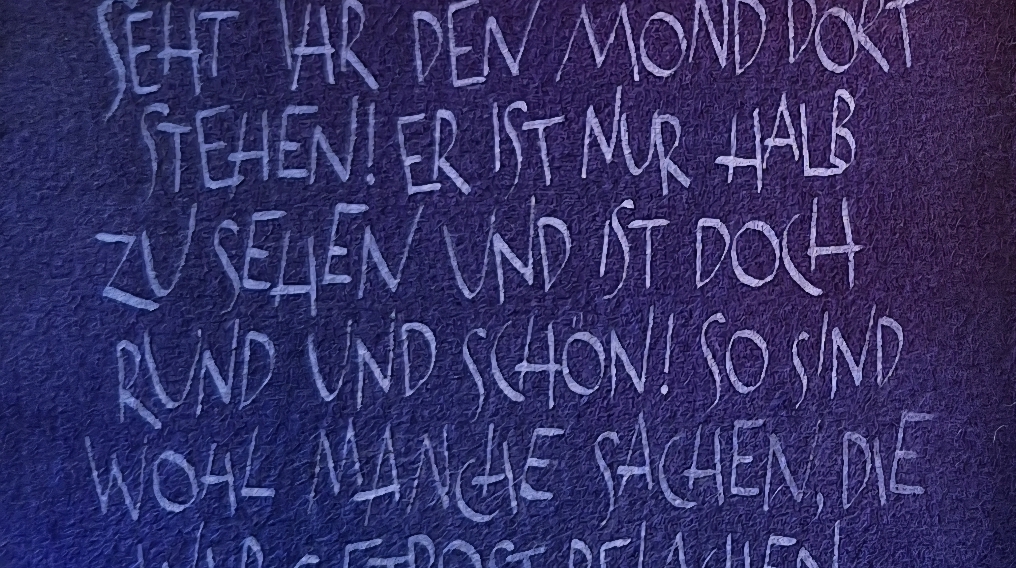 SEHT IHR DEN MOND DORT
STEHEN! ER IST NUR HALB
ZU SEHEN UND IST DOCH
RUND UND SCHÖN! SO SIND
WOHL MANCHE SACHEN, DIE
WIR GETROST BELACHEN